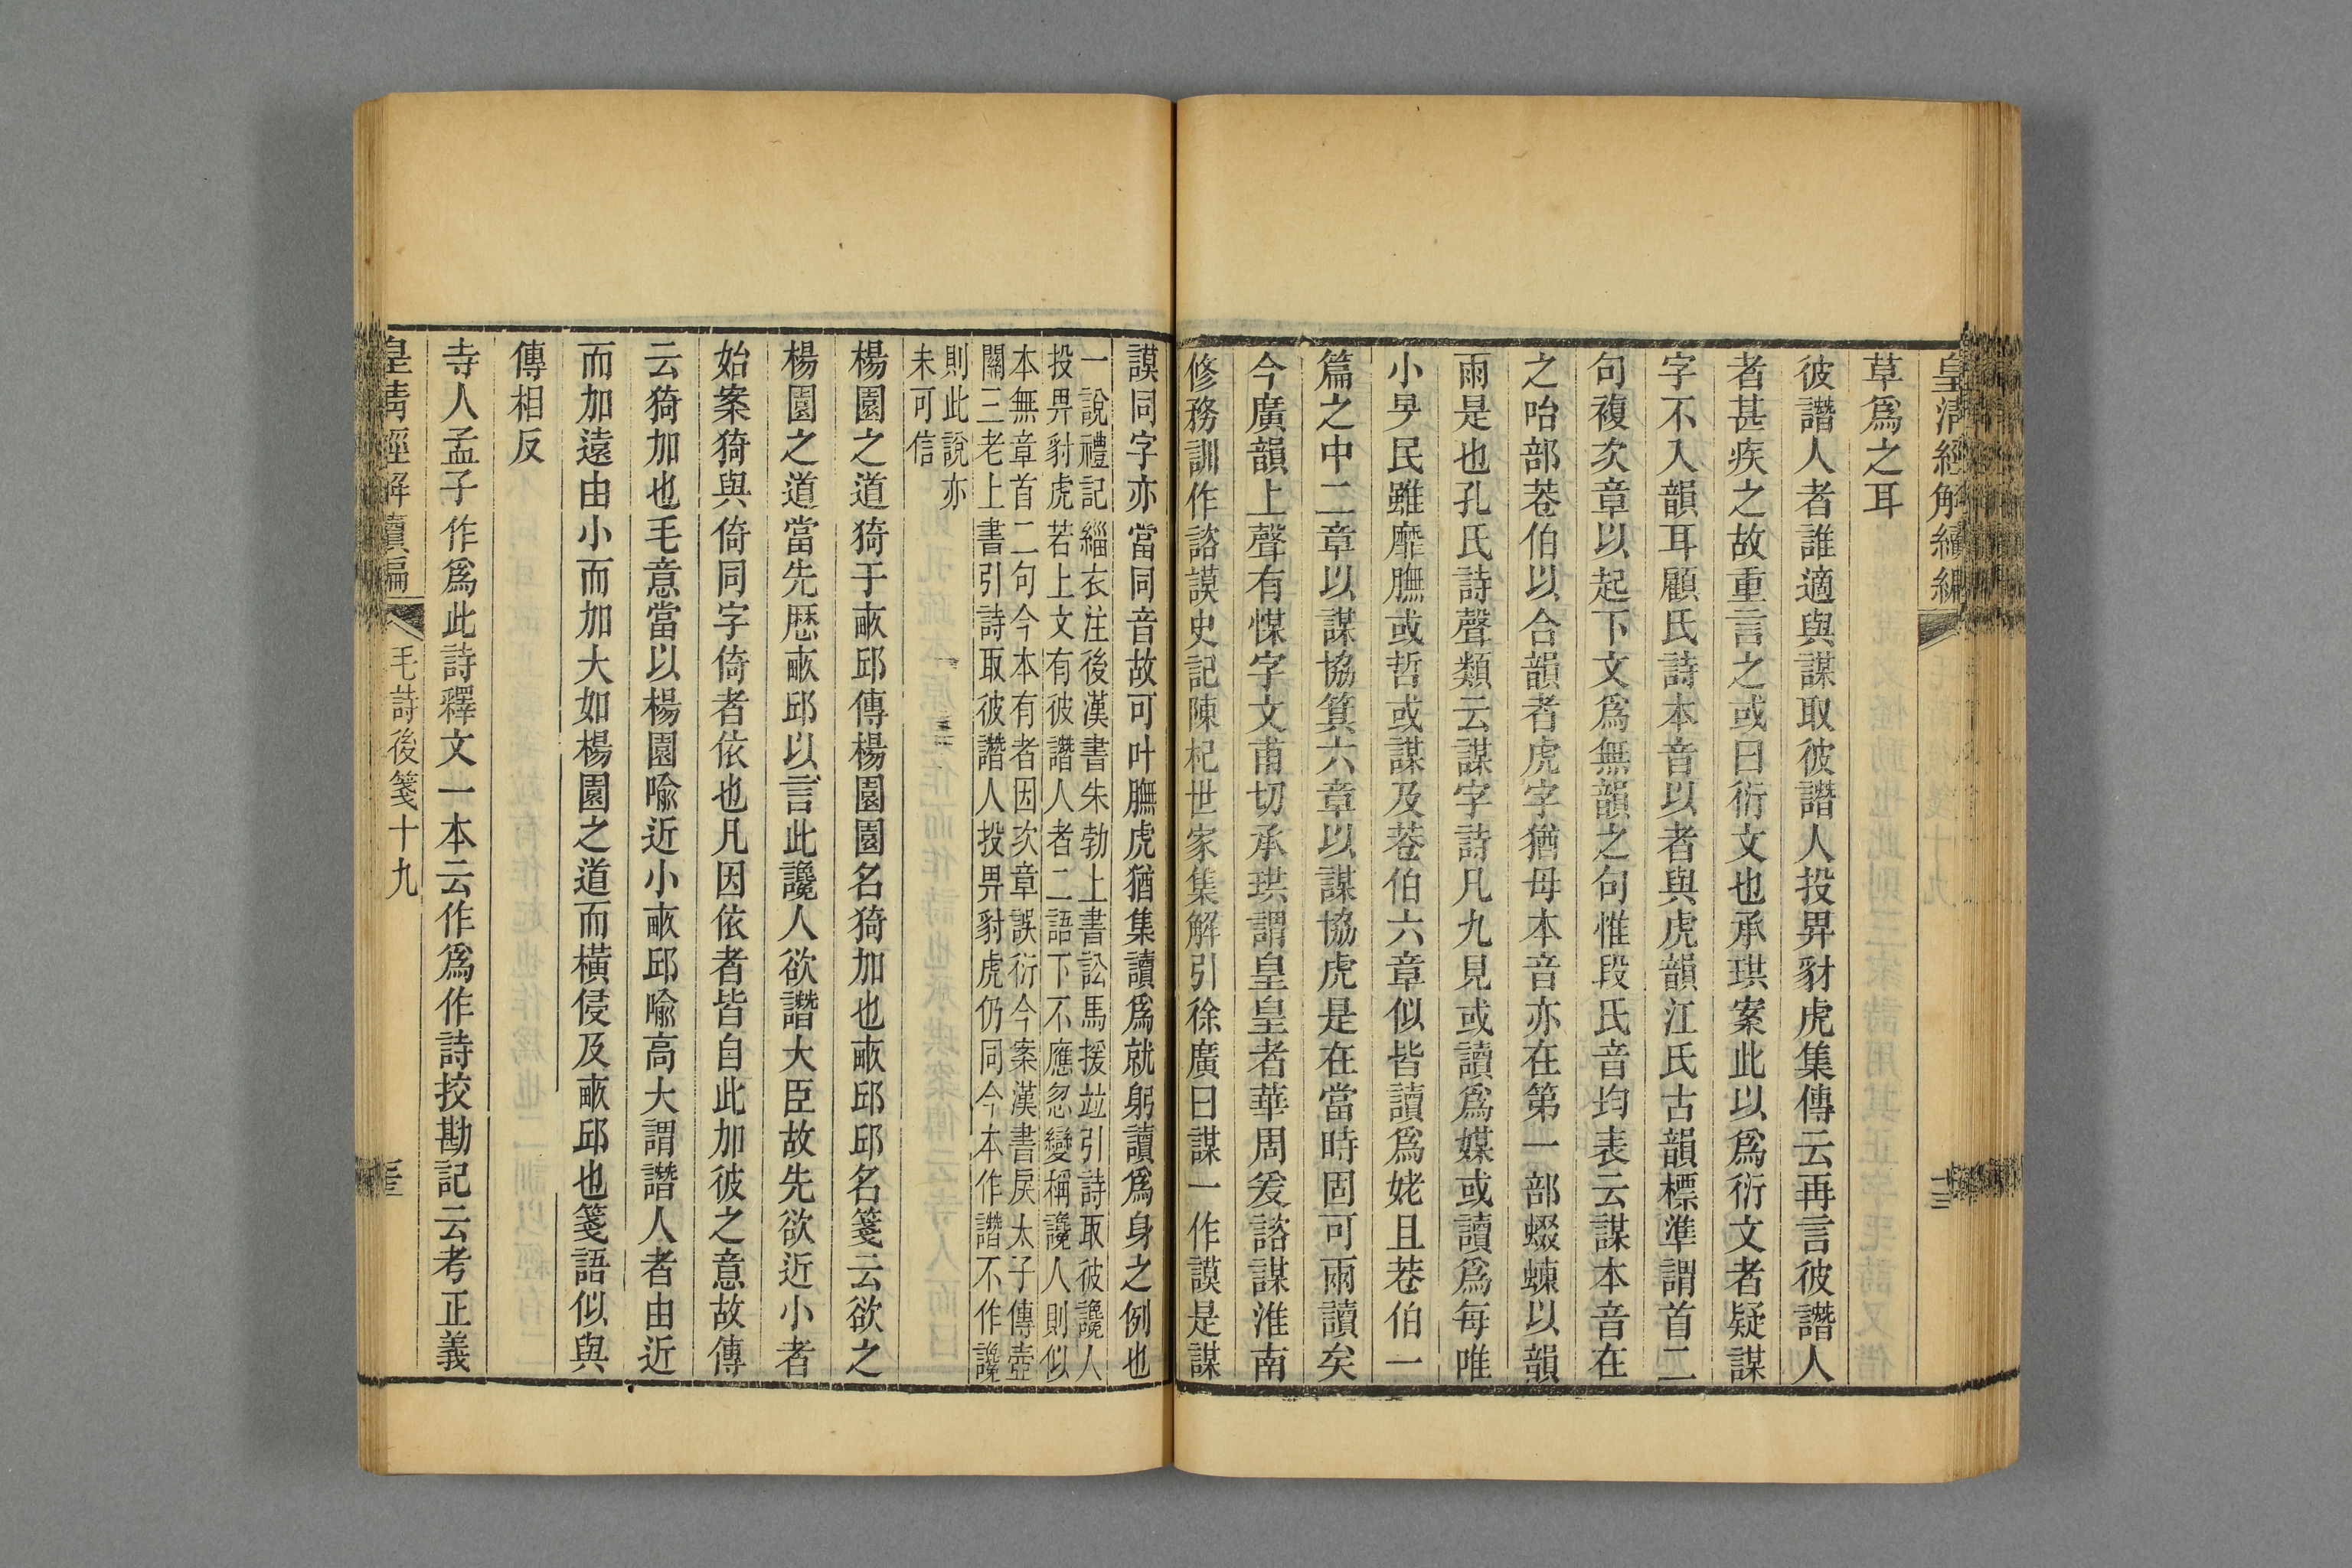 皇淸經解續編
十三
草爲之耳
彼譖人者誰適與謀取彼譖人投畀豺虎集傳云再言彼譖人
者甚疾之故重言之或曰衍文也承珙案此以爲衍文者疑謀
字不入韻耳顧氏詩本音以者與虎韻江氏古韻標準謂首二
句複次章以起下文爲無韻之句惟段氏音均表云謀本音在
之咍部巷伯以合韻者虎字猶母本音亦在第一部蝃蝀以韻
雨是也孔氏詩聲類云謀字詩凡九見或讀爲媒或讀爲每唯
小旻民雖靡膴或哲或謀及巷伯六章似皆讀爲姥且巷伯一
篇之中二章以謀協箕六章以謀協虎是在當時固可兩讀矣
今廣韻上聲有㦖字文甫切承珙謂皇皇者華周爰諮謀淮南
修務訓作諮謨史記陳杞世家集解引徐廣曰謀一作謨是謀
謨同字亦當同音故可叶膴虎猶集讀爲就躬讀爲身之例也
一說禮記緇衣注後漢書朱勃上書訟馬援竝引詩取彼讒人
投畀豺虎若上文有彼譖人者二語下不應忽變稱讒人則似
本無章首二句今本有者因次章誤衍今案漢書戾太子傳壺
關三老上書引詩取彼譖人投畀豺虎仍同今本作譖不作讒
則此說亦
未可信
楊園之道猗于畝邱傳楊園園名猗加也畝邱邱名箋云欲之
楊園之道當先歷畝邱以言此讒人欲譖大臣故先欲近小者
始案猗與倚同字倚者依也凡因依者皆自此加彼之意故傳
云猗加也毛意當以楊園喩近小畝邱喩高大謂譖人者由近
而加遠由小而加大如楊園之道而橫侵及畝邱也箋語似與
傳相反
寺人孟子作爲此詩釋文一本云作爲作詩挍勘記云考正義
皇淸經解續編
毛詩後箋十九